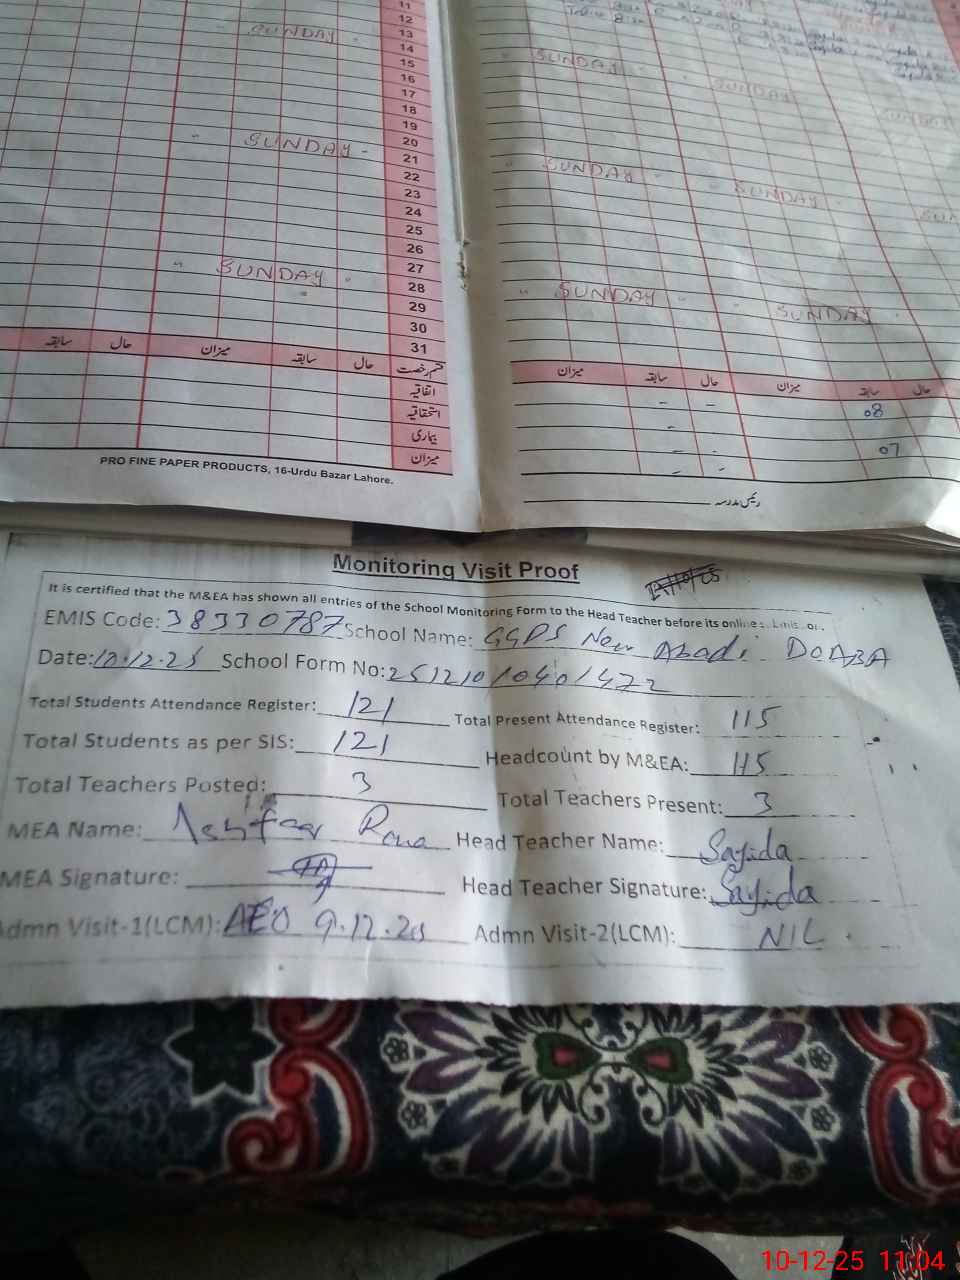 11
12
13 - SUNDAY -
14
15
16
17
18
19
20 - SUNDAY -
21
22
23
24
25
26
27 " SUNDAY "
28
29
30
31
سابقہ حال میزان سابقہ حال قسم رخصت
اتفاقیہ
استحقاقیہ
بیماری
میزان
PRO FINE PAPER PRODUCTS, 16-Urdu Bazar Lahore.
SUNDAY
SUNDAY
SUNDAY
" SUNDAY " - SUNDAY
" SUNDAY " - SUNDAY
میزان سابقہ حال میزان سابقہ حال
- - 08
-
- - 07
- -
رئیس مدرسہ
Monitoring Visit Proof
It is certified that the M&EA has shown all entries of the School Monitoring Form to the Head Teacher before its online
EMIS Code: 38330787 School Name: GGPS New Abadi DOABA
Date: 10.12.25 School Form No: 25121010401472
Total Students Attendance Register: 121 Total Present Attendance Register: 115
Total Students as per SIS: 121 Headcount by M&EA: 115
Total Teachers Posted: 3 Total Teachers Present: 3
MEA Name: Ashfaq Rana Head Teacher Name: Sajida
MEA Signature: Head Teacher Signature: Sajida
Admn Visit-1(LCM): AEO 9.12.25 Admn Visit-2(LCM): NIL
10-12-25 11:04